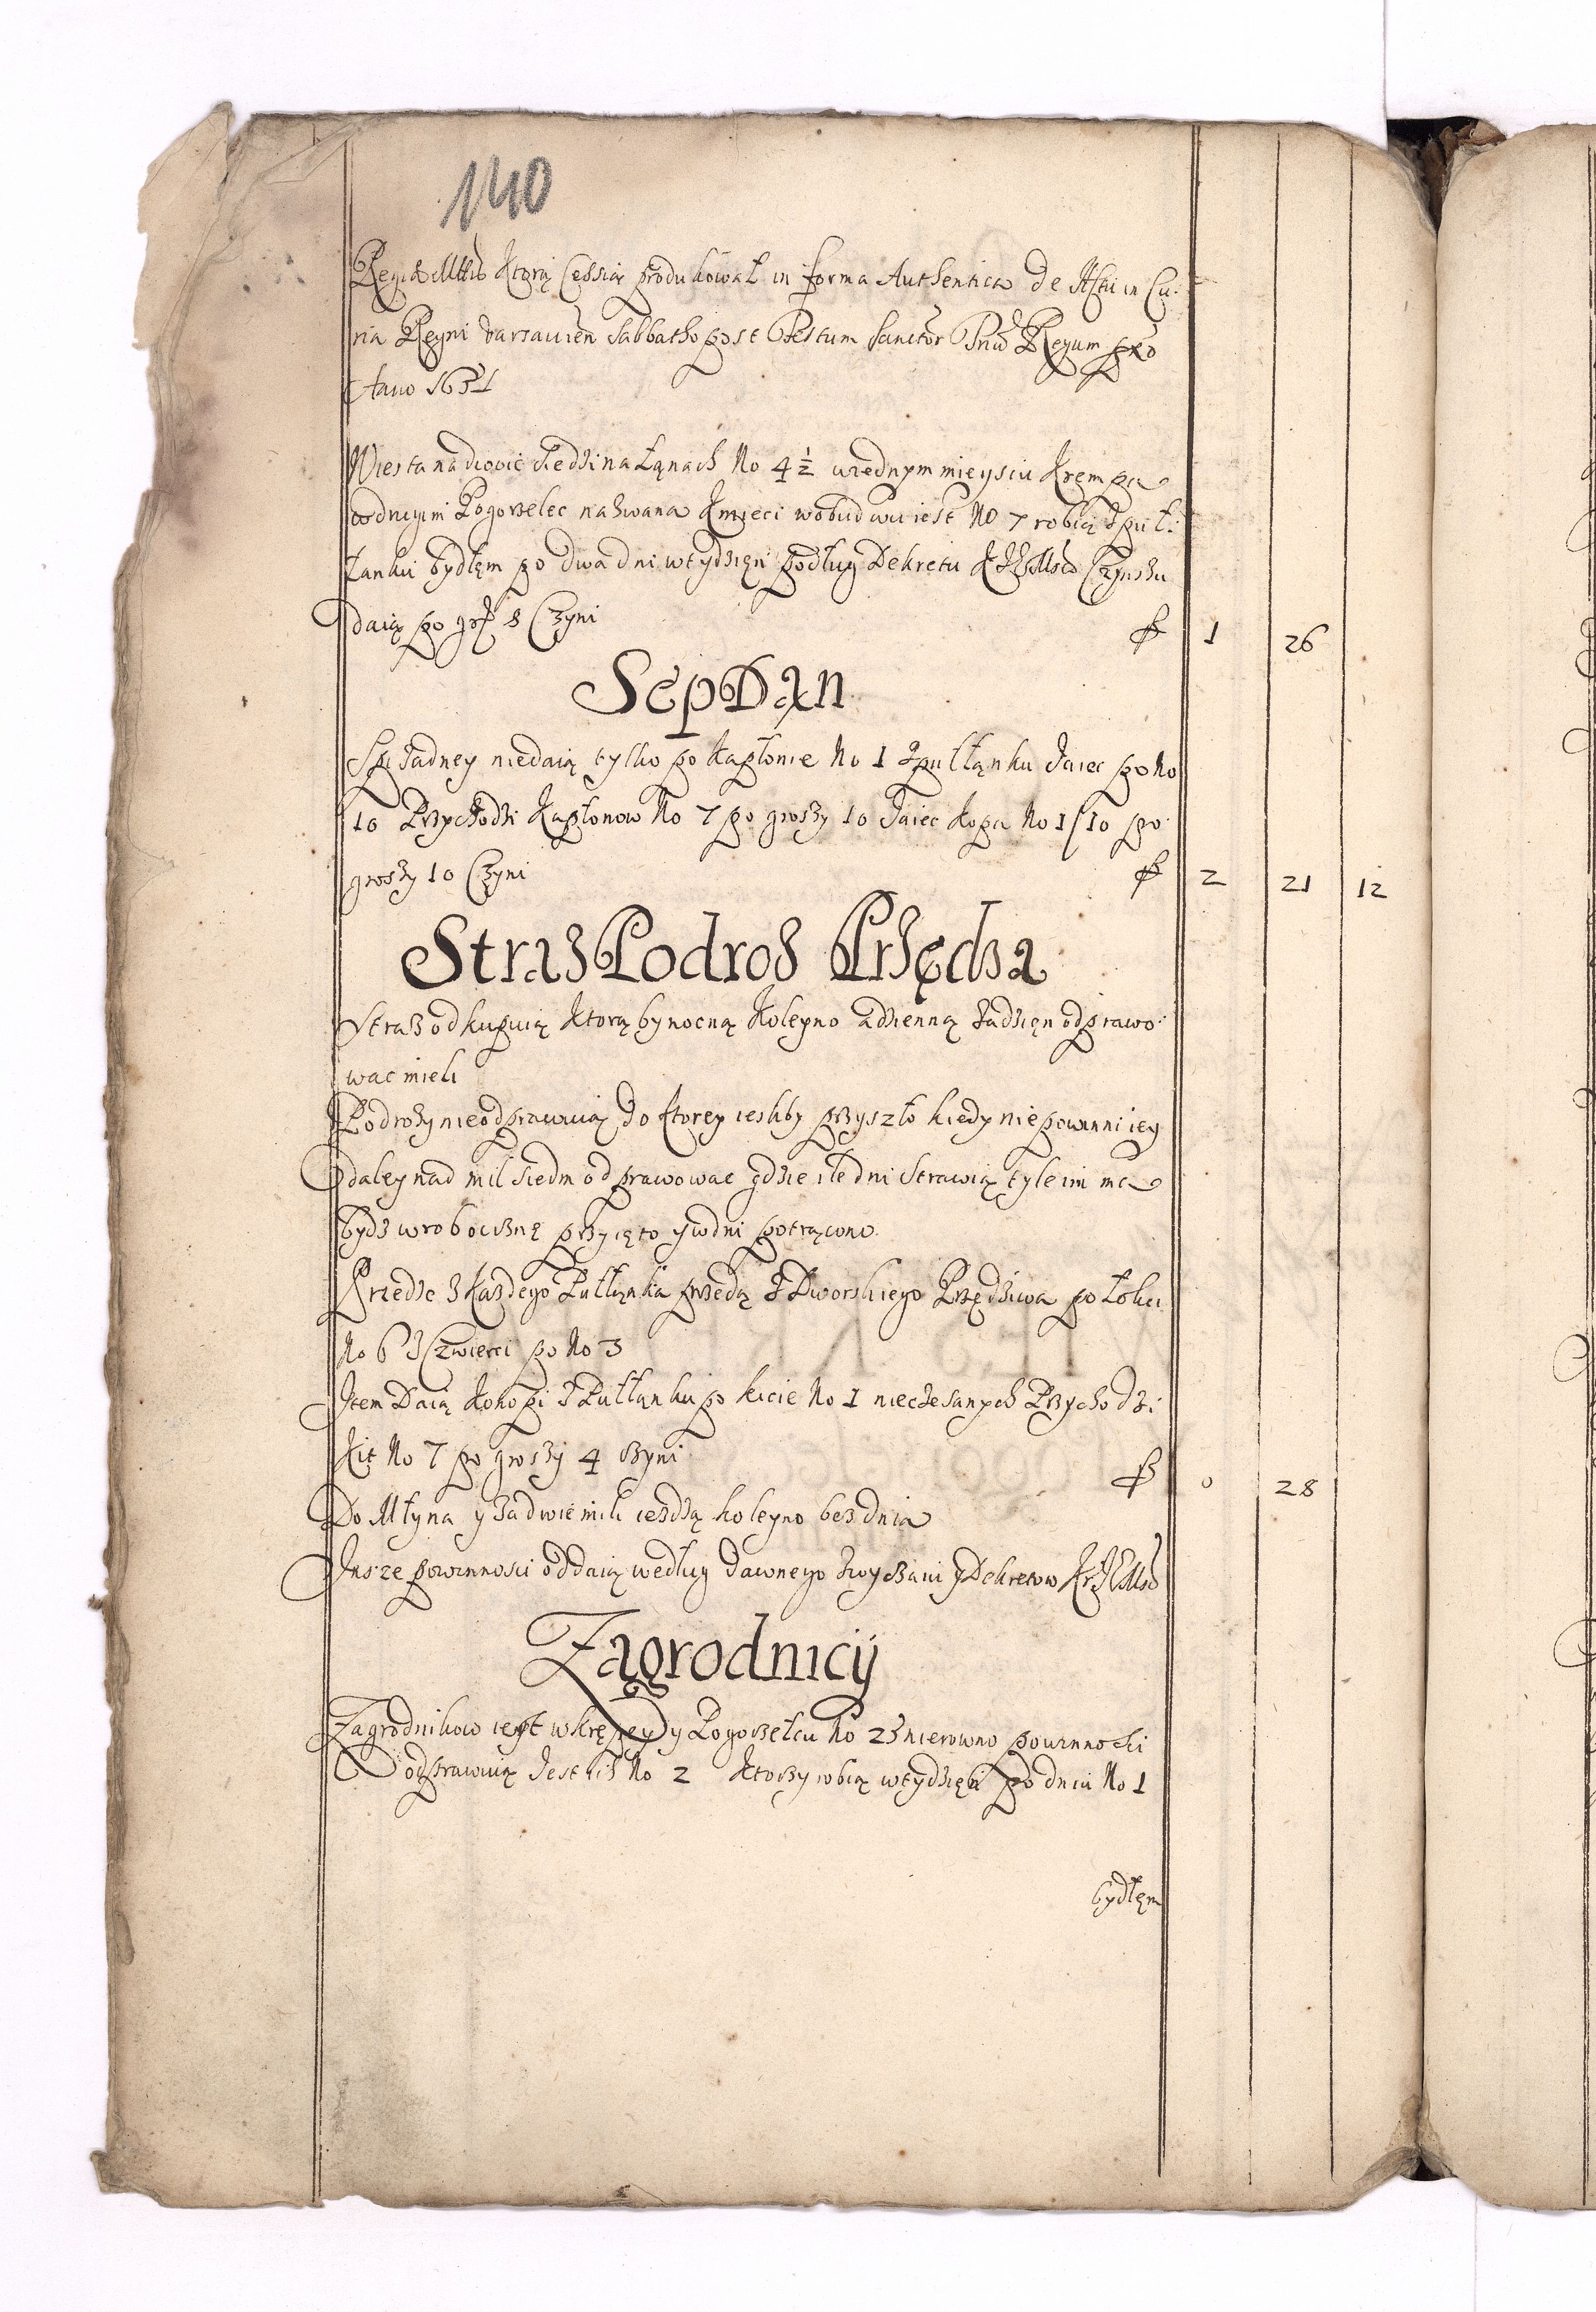 140
Regiæ Mttis ktorą Cessią produkował in forma Authentica de Actu in Cu-
ria Regni Varsavien Sabbatho post Festum Sanctor Triu Regum pro
Anno 1631
Wies ta nadwoie siedzi na Łąnach No 4 1/2 w iednym mieyscu Krempa
w drugim Pogorzelec nazwana Kmieci w obudwu iest No 7 robią z puł-
łanku bydłęm po dwa dni w tydzięn podług Dekretu K J K Msci Czynszu
daią po gr 8 Czyni f 1 26
Sep Dąn
Spu zadney niedaią tylko po kapłonie No 1 z pułłąnku Jaiec po No
10 Przychodzi Kapłonow No 7 po groszy 10 Jaiec kopa No 1/10 po
groszy 10 Czyni f 2 21 12
Straz Podroz Przędza
Straz odkupuią ktorą by nocną koleyno a dzienną za dzięn odprawo-
wac mieli
Podrozy nieodprawuią do ktorey iesliby przyszło kiedy nie powinni iey
daley nad mil siedm odprawowac gdzie ile dni strawią tyle im ma
bydz w robociznę przyięto y w dni potrącono
Przedze z Kazdego Pułłąnka przedą z Dworskiego Przędziwa po łokci
No 6 z Czwierci po No 3
Item Daią konopi z Pułłąnku po kicie No 1 nieczesanych Przychodzi
Kit No 7 po groszy 4 czyni f 0 28
Do Młyna y za dwie mili iezdzą koleyno bez dnia
Insze powinnosci oddaią według dawnego zwyczaiu y Dekretow Kr J K Msci
Zagrodnicÿ
Zagrodnikow iest w Krępey y Pogorzelcu No 23 nierowno powinnosci
odprawuią Jest ich No 2 ktorzy robią w tydzięn po dniu No 1
bydłęm